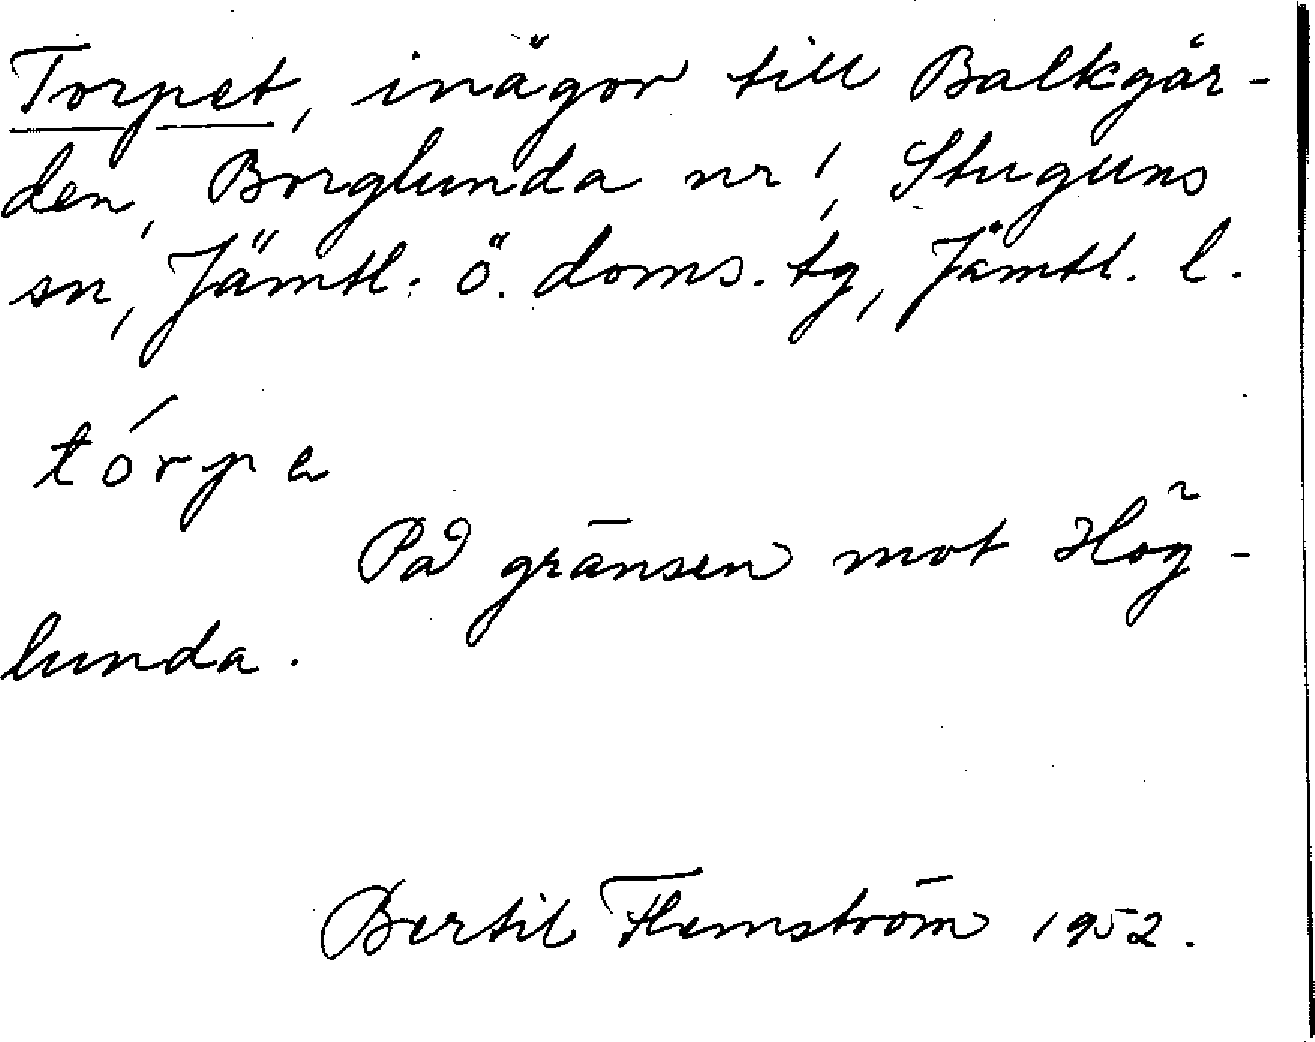 Torpet, inägor till Balkgår-
den, Borglunda nr 1, Stuguns
sn, Jämtl. ö. doms. tg, Jämtl. l.
tórpa
På gränsen mot Hög-
lunda.
Bertil Flemström 1952.